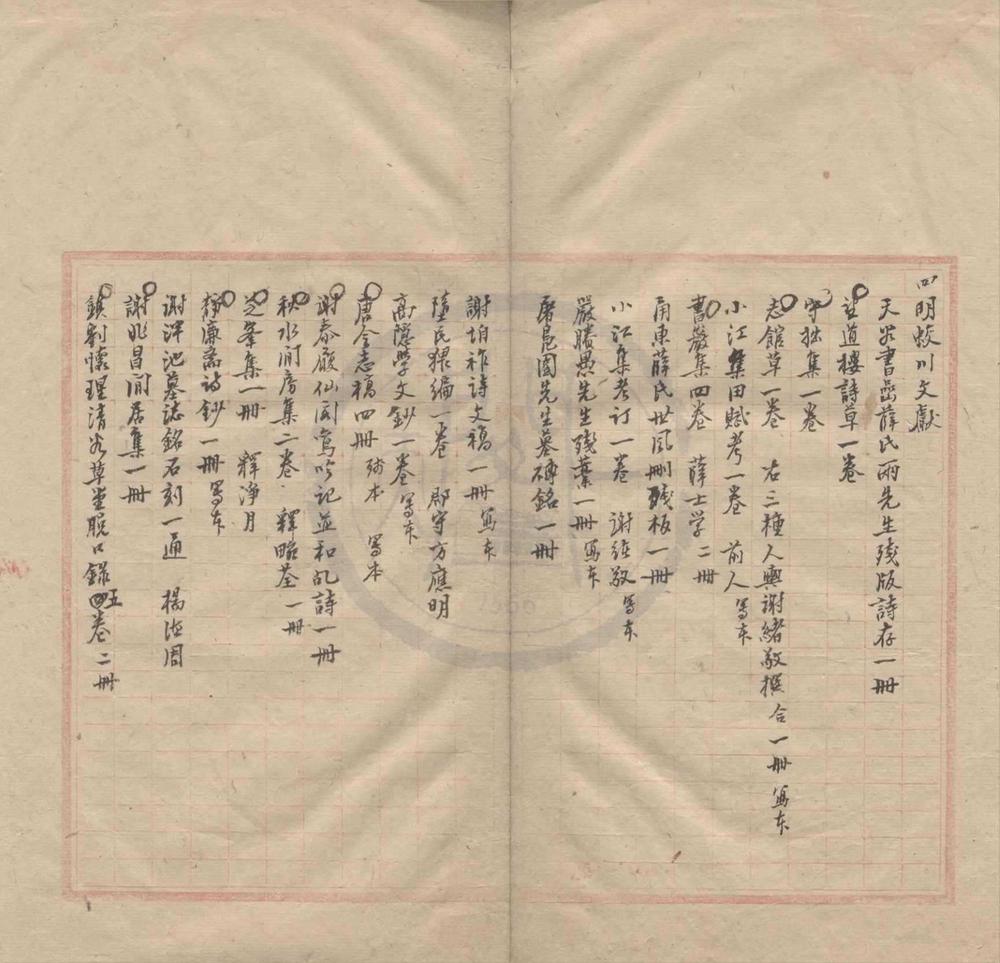 四明蛟川文獻
天谷書嵒薛氏兩先生殘版詩存一冊
望道樓詩草一卷
守拙集一卷
志館草一卷 右三種人輿謝緒敬撰 合一冊寫本
小江集田賦考一卷 前人 寫本
書巖集四卷 薛士学 二冊
甬東薛氏世風刪殘板一冊
小江集考订一卷 謝 敬 寫本
嚴勝畏先生殘葉一冊 寫本
屠 園先生墓磚銘一冊
謝 祚詩文稿一冊 寫本
墮民猥編一卷 郡守方應明
高隱学文鈔一卷 寫本
唐令志稿四冊 殘本 寫本
謝泰廄仙阁 吟記並和乩詩一冊
秋水閒房集二卷 釋 荃 一冊
芝峯集一冊 釋淨月
靜廉齋詩鈔一冊 寫本
謝渾池墓誌銘石刻一通 楊德周
謝兆昌閒居集一冊
鎮劉懷理清 草堂脫口錄五卷二冊
1360